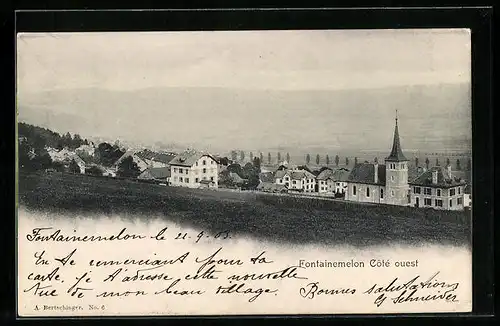 Fontainemelon le 21.9.03
Fontainemelon Côté ouest
En te remerciant pour ta
carte, je t'adresse cette nouvelle
Vue de mon beau village.
Bonnes salutations
Schneider
A. Bertschinger, No. 6